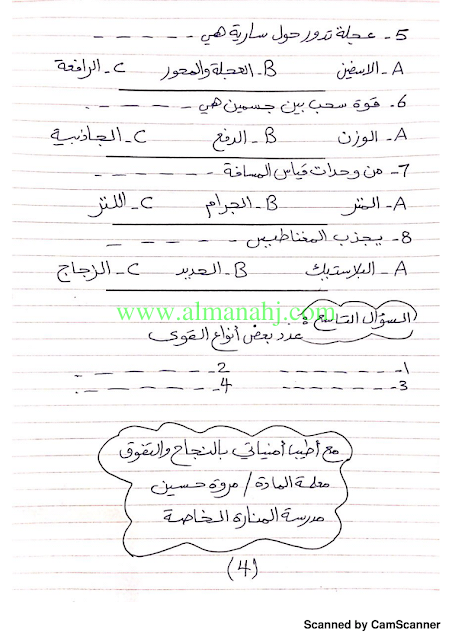 5- عجلة تدور حول سارية هي - - - - -
A- الاسفين B- العجلة والمحور C- الرافعة
6- قوة سحب بين جسمين هي - - - - -
A- الوزن B- الدفع C- الجاذبية
7- من وحدات قياس المسافة - - - - - -
A- المتر B- الجرام C- اللتر
8- يجذب المغناطيس - - - - -
A- البلاستيك B- الحديد C- الزجاج
www.almanahj.com
السؤال التاسع :
عدد بعض أنواع القوى
1- - - - - - - 2- - - - - - -
3- - - - - - - 4- - - - - - -
مع أطيب أمنياتي بالنجاح والتفوق
معلمة المادة / مروة حسين
مدرسة المنارة الخاصة
(4)
Scanned by CamScanner